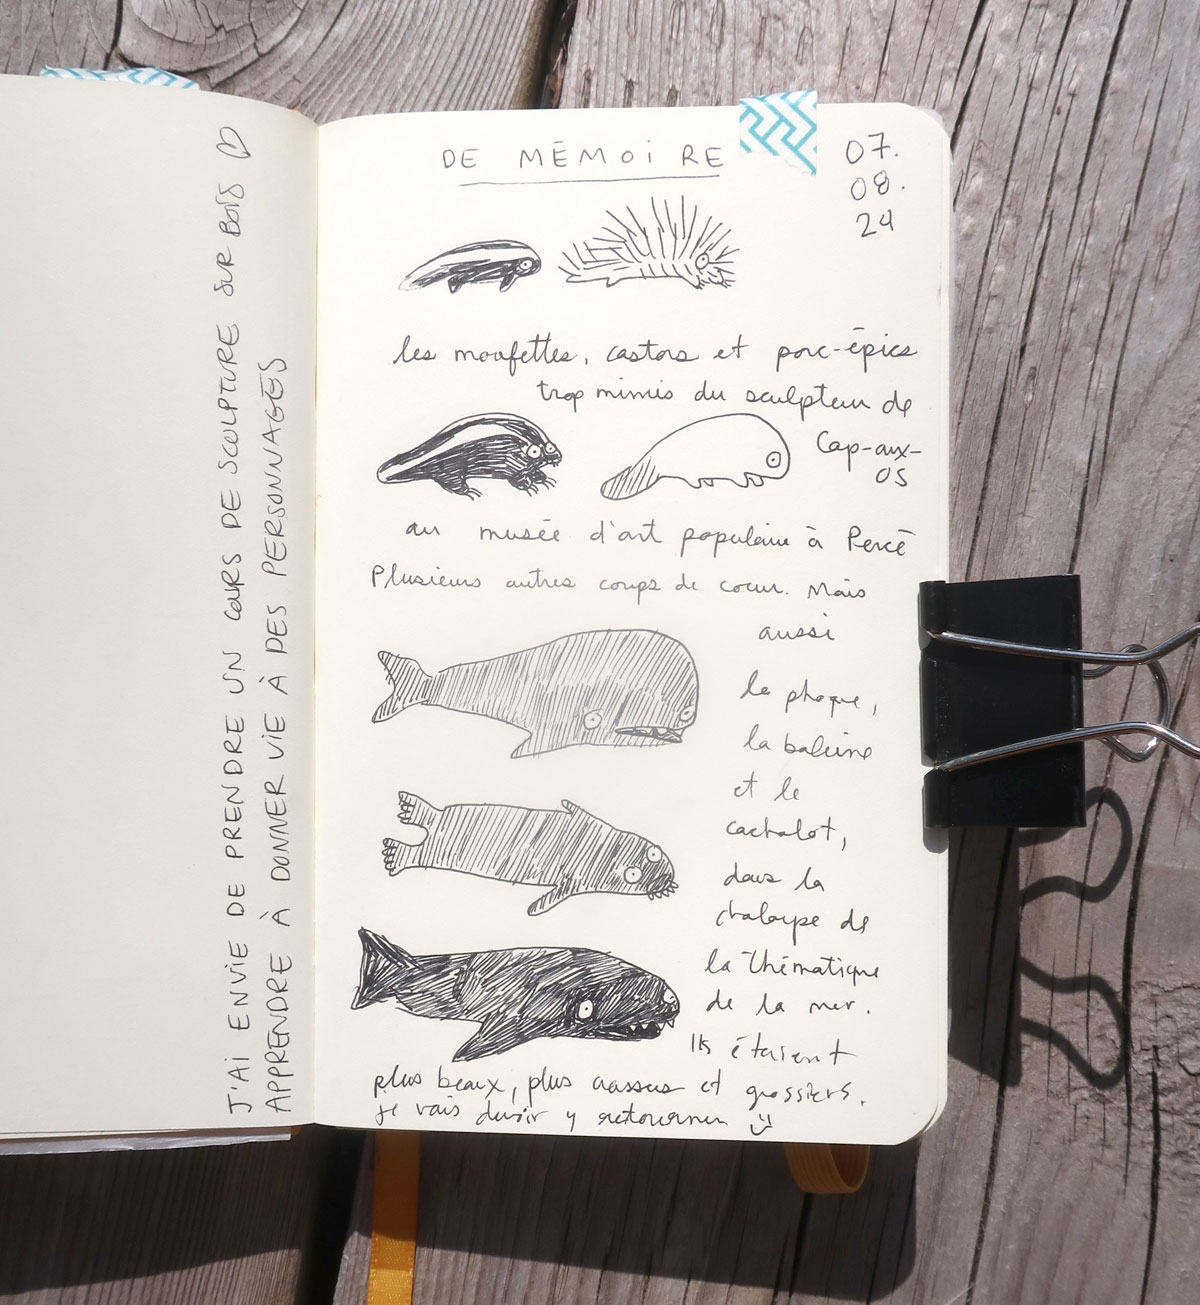 J'AI ENVIE DE PRENDRE UN COURS DE SCULPTURE SUR BOIS ♡
APPRENDRE À DONNER VIE À DES PERSONNAGES
DE MÉMOIRE
07.
08.
24
les moufettes, castors et porc-épics
trop mimis du sculpteur de
Cap-aux-
OS
au musée d'art populaire à Percé
Plusieurs autres coups de coeur. Mais
aussi
le phoque,
la baleine
et le
cachalot,
dans la
chaloupe de
la thématique
de la mer.
Ils étaient
plus beaux, plus crasses et grossiers.
je vais devoir y retourner